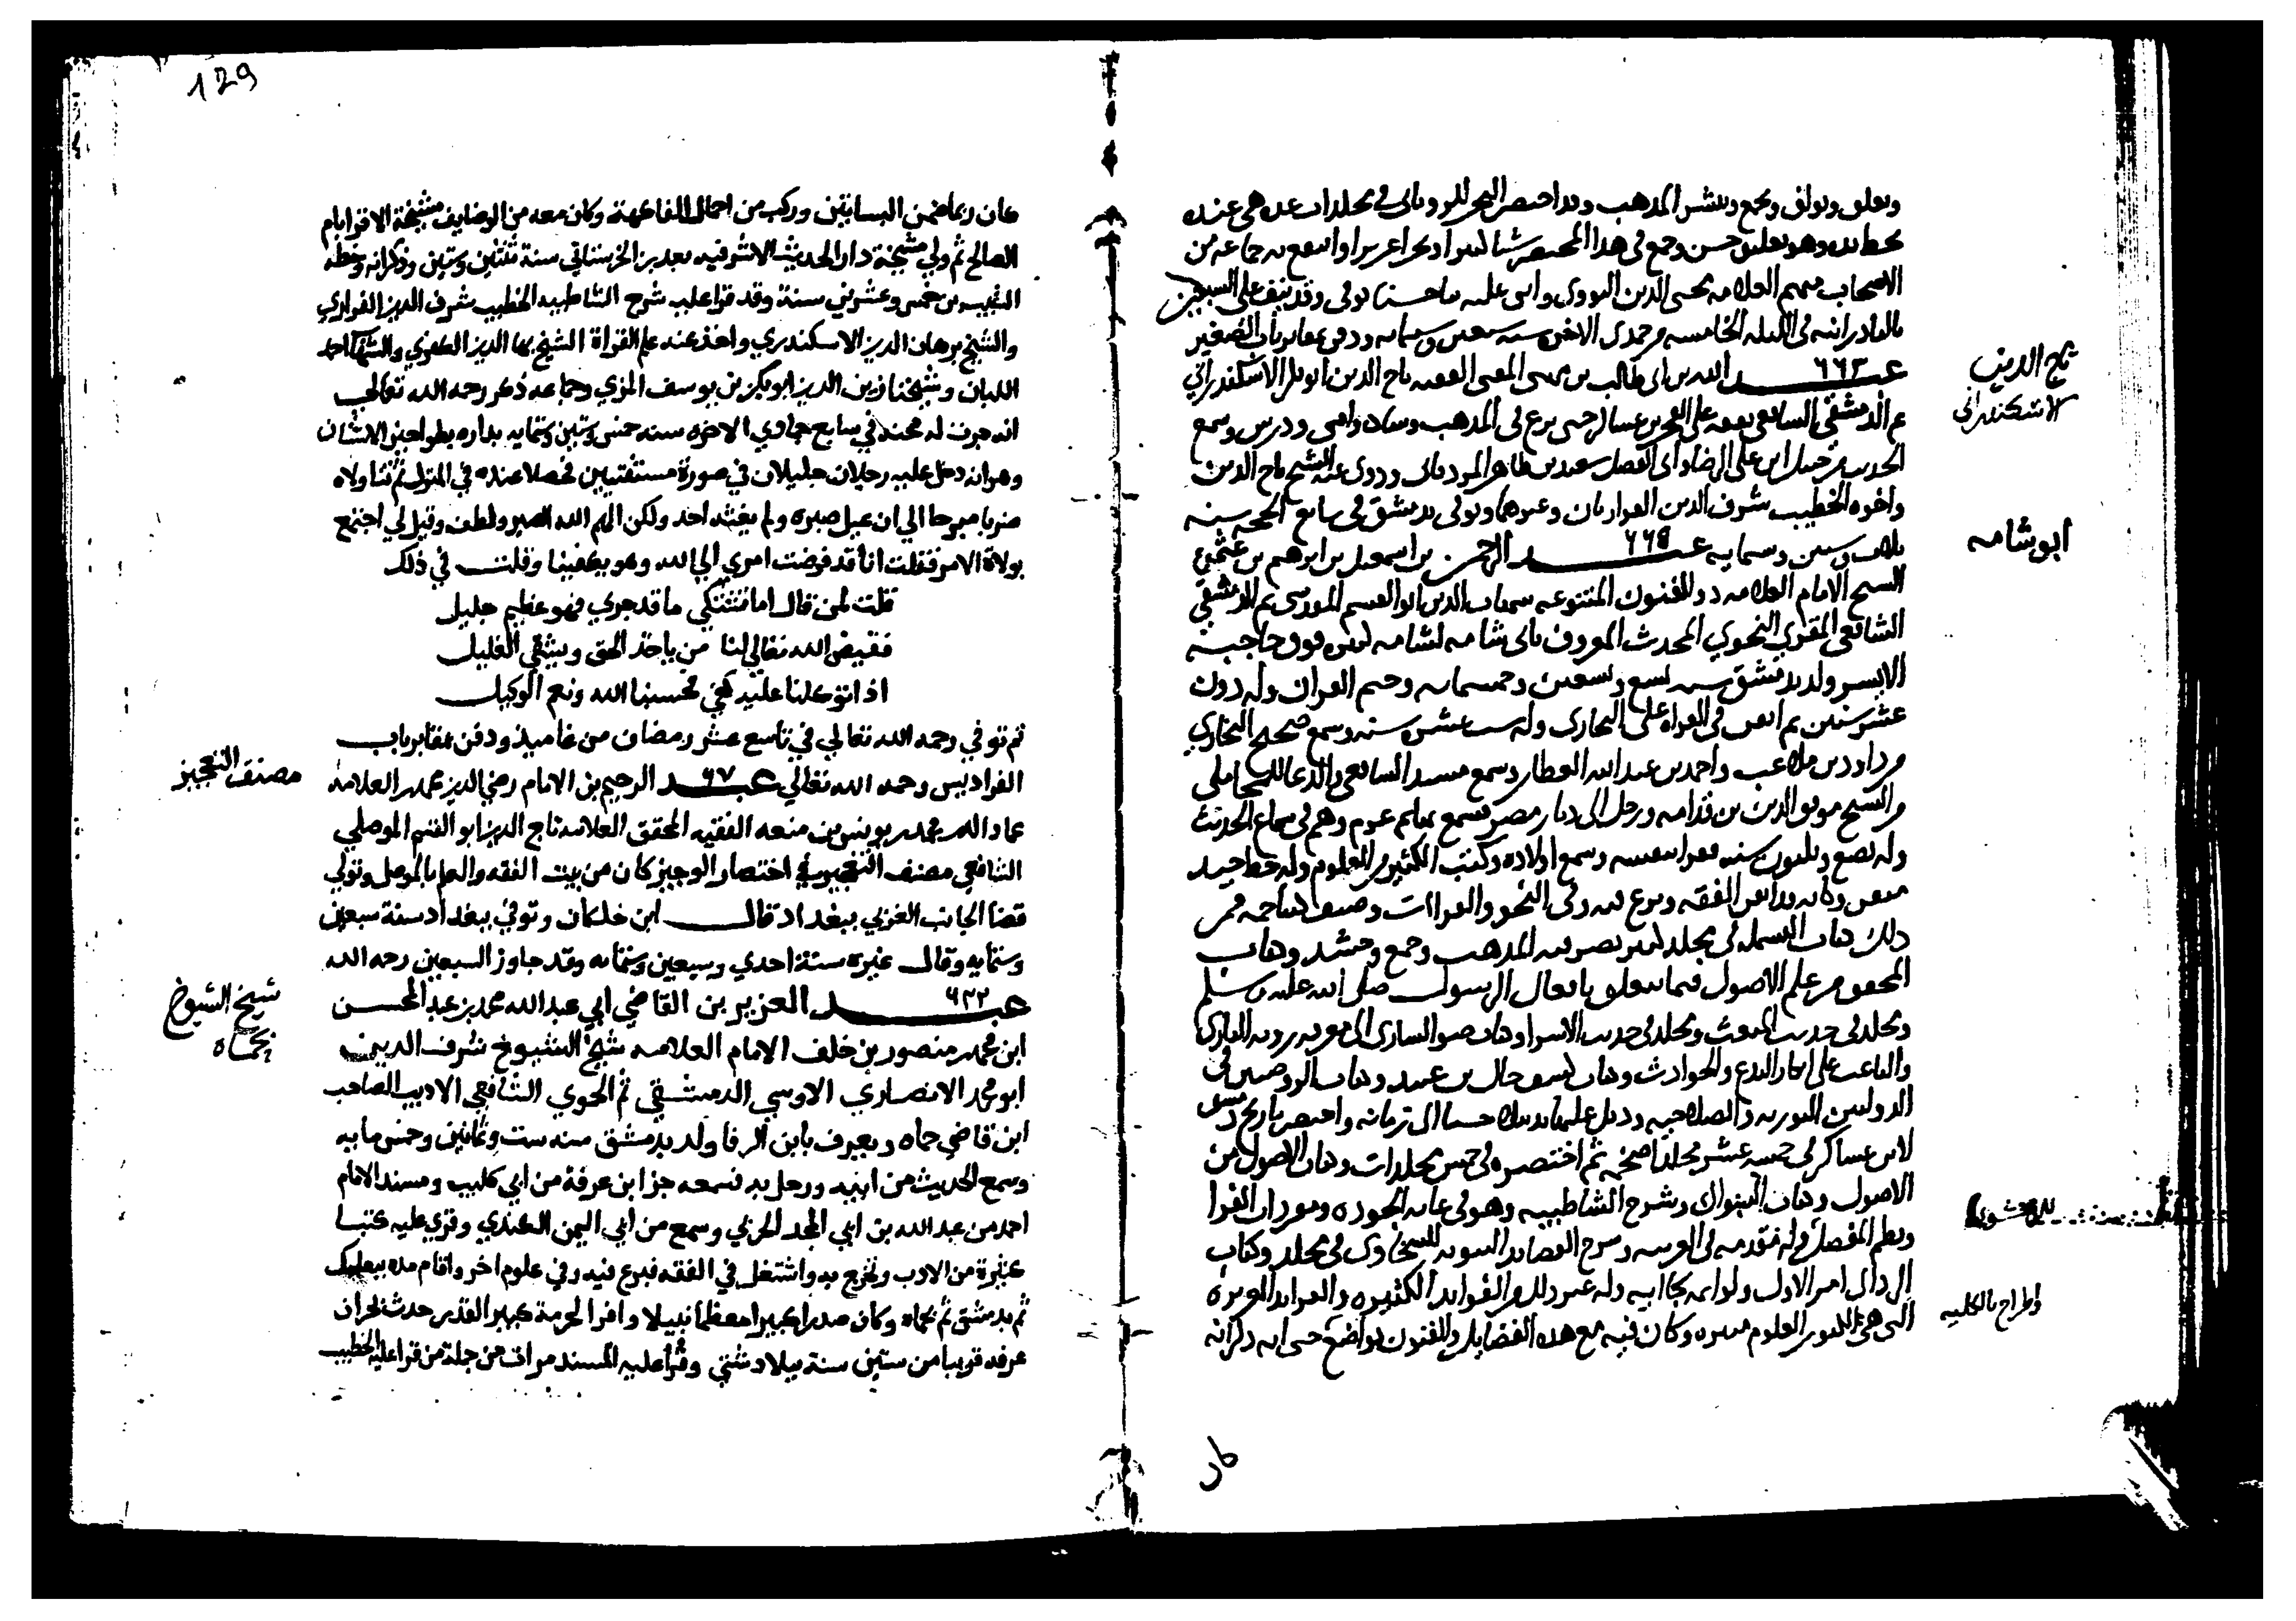 ويعلق ويولف ويجمع وينشر المذهب وقد اختصر البحر للروياني في مجلدات عدة هي عنده
بخط يده وهو تعليق حسن وجمع في هذا المختصر شيا كثيرا وانتفع به جماعة من
الاصحاب منهم العلامة محيي الدين النووي توفي وقد نيف على السبعين
في الليلة الخامسة من جمدى الاخرة سنة سبعين وستمايه ودفن بمقابر باب الصغير
٦٦٣ عبد الله بن ابي طالب بن المفتي الفقيه تاج الدين ابو بكر الاسكندراني
ثم الدمشقي الشافعي تفقه على الفخر بن عساكر حتى برع في المذهب وساد وافتى ودرس وسمع
الحديث من حنبل ابي علي الرصافي وابي الفضل وروى عنه الشيخ تاج الدين
واخوه الخطيب شرف الدين الفزاريان وغيرهما وتوفي بدمشق في سابع الحجة سنة
ثلاث وستين وستمايه ٦٦٥ عبد الرحمن بن اسمعيل بن ابرهيم بن عثمن
الشيخ الامام العلامة ذو الفنون المتنوعة شهاب الدين ابو القسم المقدسي ثم الدمشقي
الشافعي المقري النحوي المحدث المعروف بابي شامة لشامة كبيرة فوق حاجبه
الايسر ولد بدمشق سنة تسع وتسعين وخمسمايه وختم القران وله دون
عشر سنين ثم اتقن في القراة على السخاوي وله ست عشرة سنة وسمع صحيح البخاري
من داود بن ملاعب واحمد بن عبد الله العطار وسمع مسند الشافعي والدعا للمحاملي
من الشيخ موفق الدين بن قدامة ورحل الى ديار مصر
وله بضع وثلثون سنة وسمع اولاده وكتب الكثير من العلوم وله خط جيد
متقن الفقه وبرع فيه وفي النحو والقراات وصنف فمن
ذلك كتاب البسملة في مجلد كبير نصر فيه المذهب وجمع وحشد وكتاب
المحقق من علم الاصول فيما يتعلق بافعال الرسول صلى الله عليه وسلم
ومجلد في حديث المبعث ومجلد في حديث الاسرا وكتاب ضوء الساري الى معرفة روية الباري
والباعث على انكار البدع والحوادث وكتاب كشف حال بني عبيد وكتاب الروضتين في
الدولتين النورية والصلاحية وذيل عليهما الى زمانه واختصر تاريخ دمشق
لابن عساكر في خمسة عشر مجلدا ضخمة ثم اختصره في خمس مجلدات وكتاب الاصول من
الاصول وكتاب وشرح الشاطبية وهو في غاية الجودة ومفردات القرا
ونظم المفصل وله مقدمة في العربية وشرح القصايد النبوية للسخاوي في مجلد وكتاب
وله غير ذلك من الفوايد الكثيرة والفرايد العزيزة
التي هي العلوم وكان فيه مع هذه الفضايل والفنون تواضع حتى انه ذكر انه
كان
تاج الدين
الاسكندراني
ابو شامه
واطراح بالكلية
129
كان ربما ضمن البساتين وركب من احمال الفاكهة وكان معه من الوضايف مشيخة الاقرا بام
الصالح ثم ولي مشيخة دار الحديث الاشرفيه بعد بن الخرستاني سنة ثنتين وستين وذكر انه وخطه
الشيب بن خمس وعشرين سنة وقد قرا عليه شرح الشاطبيه الخطيب شرف الدين الفزاري
والشيخ برهان الدين الاسكندري واخذ عنه علم القراة الشيخ بها الدين الكفري والشهاب احمد
اللبان وشيخنا زين الدين ابو بكر بن يوسف المزي وجماعه ذكر رحمه الله تعالى
انه جرت له محنة في سابع جمادي الاخره سنه خمس وستين وستمايه بداره بطواحين الاشنان
وهو انه دخل عليه رجلان جليلان في صورة مستفتيين فحصلا عنده في المنزل ثم تناولاه
ضربا مبرحا الي ان عيل صبره ولم يغثه احد ولكن الهم الله الصبر ولطف وقيل لي اجتمع
بولاة الامر فقلت انا قد فوضت امري الي الله وهو يكفينا وقلت في ذلك
قلت لمن قال اما تشتكي ما قد جري فهو عظيم جليل
فقيض الله تعالى لنا من ياخذ الحق ويشفي الغليل
اذا توكلنا عليه كفي فحسبنا الله ونعم الوكيل
ثم توفي رحمه الله تعالي في تاسع عشر رمضان من عاميذ ودفن بمقابر باب
الفراديس رحمه الله تعالي ٦٧ عبد الرحيم بن الامام رضي الدين محمد بن العلامة
عماد الدين محمد بن يونس بن منعه الفقيه المحقق العلامة تاج الدين ابو القسم الموصلي
الشافعي مصنف التعجيز في اختصار الوجيز كان من بيت الفقه والعلم بالموصل وتولي
قضا الجانب الغربي ببغداد قال ابن خلكان وتوفي ببغداد سنة سبعين
وستمايه وقال غيره سنة احدي وسبعين وستمايه وقد جاوز السبعين رحمه الله
٦٢٢ عبد العزيز بن القاضي ابي عبد الله محمد بن عبد المحسن
ابن محمد بن منصور بن خلف الامام العلامه شيخ الشيوخ شرف الدين
ابو محمد الانصاري الاوسي الدمشقي ثم الحموي الشافعي الاديب الصاحب
ابن قاضي حماه ويعرف بابن الرفا ولد بدمشق سنه ست وثمانين وخمس مايه
وسمع الحديث من ابيه ورحل به فسمعه جزا ابن عرفة من ابي كليب ومسند الامام
احمد من عبد الله بن ابي المجد الحربي وسمع من ابي اليمن الكندي وقري عليه كتبا
كثيرة من الادب وتخرج به واشتغل في الفقه فبرع فيه وفي علوم اخر واقام مده ببعلبك
ثم بدمشق ثم بحماه وكان صدرا كبيرا معظما نبيلا وافر الحرمة كبير القدر حدث بجزء ابن
عرفه قريبا من ستين سنة ببلاد شتي وقرا عليه المسند مرات من جملة من قرا عليه الخطيب
مصنف التعجيز
شيخ الشيوخ
بحماه